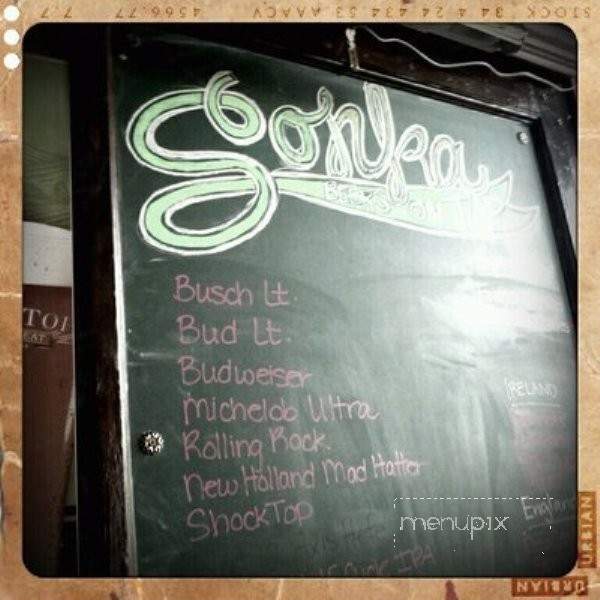 STOCK 34 4 24 434 53 AAACV 4566 77 7.7
Sonka
BEERS ON
Busch Lt.
Bud Lt.
Budweiser
Michelob Ultra
Rolling Rock
New Holland Mad Hatter
ShockTop
IPA
IRELAND
England
menupix
URBIAN
URBIAN